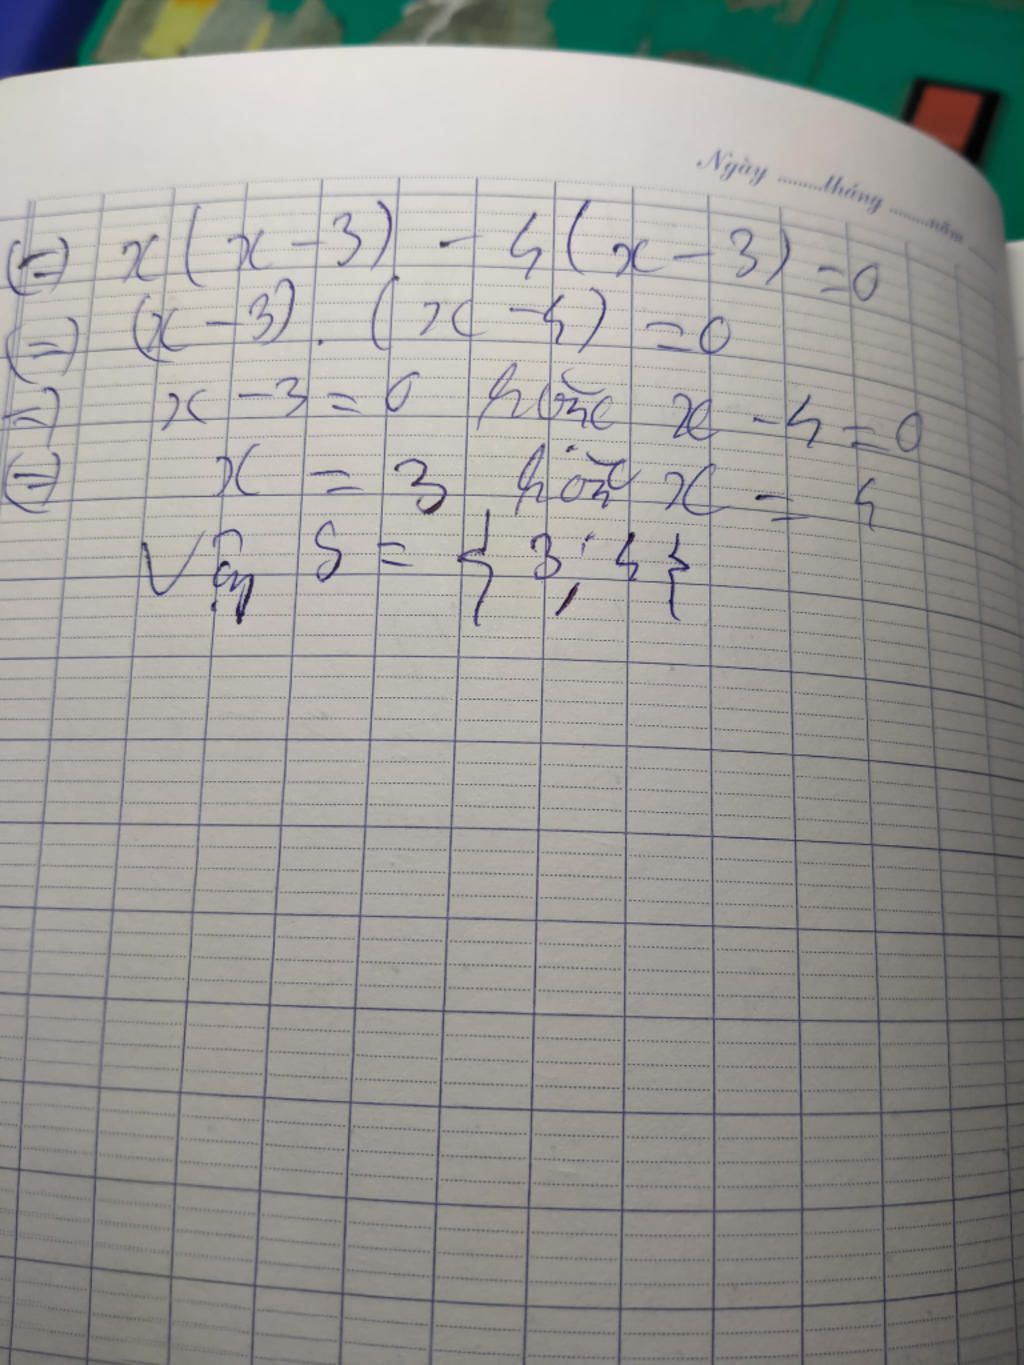 Ngày ........tháng .......năm
(=) x(x-3) - 4(x-3) = 0
(=) (x-3).(x-4) = 0
=) x-3 = 0 hoặc x-4 = 0
(=) x = 3 hoặc x = 4
Vậy S = {3; 4}